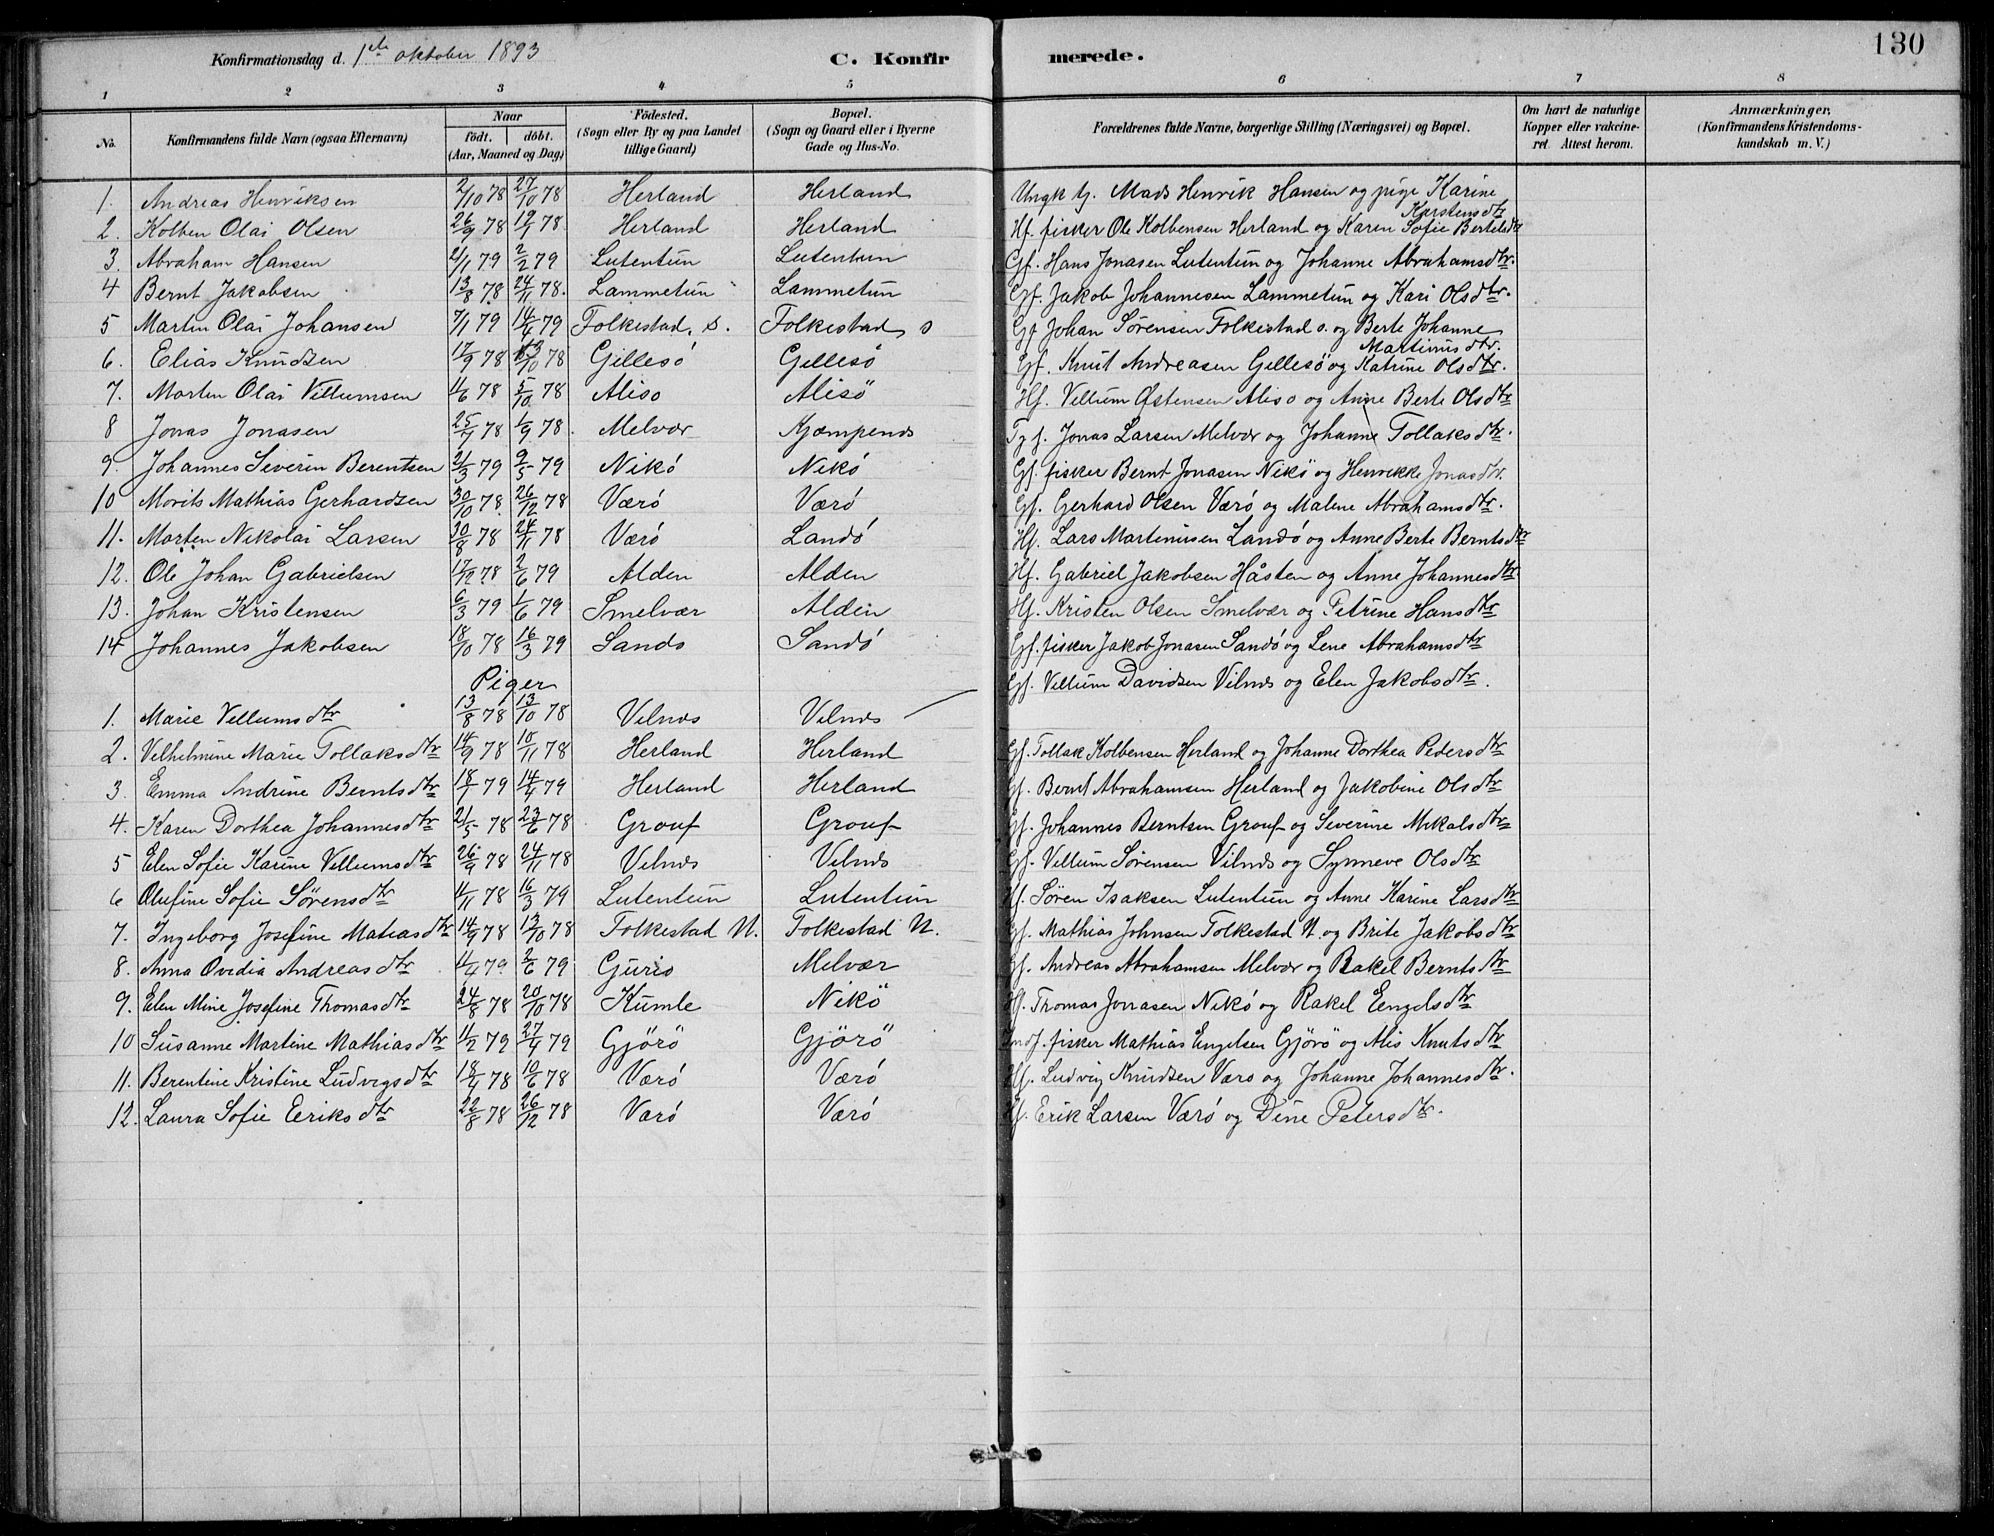 Konfirmationsdag d. 1ste oktober 1893 C. Konfirmerede. 130
1 2 3 4 5 6 7 8
No. Konfirmandens fulde Navn (ogsaa Efternavn) Naar födt. döbt. (Aar, Maaned og Dag) Födested. (Sogn eller By og paa Landet tillige Gaard) Bopæl. (Sogn og Gaard eller i Byerne Gade og Hus-No. Forældrenes fulde Navne, borgerlige Stilling (Næringsvei) og Bopæl. Om havt de naturlige Kopper eller vaccineret. Attest herom. Anmærkninger, (Konfirmandens Kristendomskundskab m. V.)
1. Andreas Henriksen 2/10 78 27/10 78 Herland Herland Ungk. Mads Henrik Hansen og pige Karine Karstensdtr
2. Kolben Olai Olsen 26/9 78 78 Herland Herland Hf. fisker Ole Kolbensen Herland og Karen Sofie Bertelsdtr
3. Abraham Hansen 2/1 79 2/2 79 Lutentun Lutentun Gf. Hans Jonasen Lutentun og Johanne Abrahamsdtr.
4 Bernt Jakobsen 13/8 78 24/11 78. Lammetun Lammetun Gf. Jakob Johannesen Lammetun og Kari Olsdtr.
5 Martin Olai Johansen 7/1 79 14/4 79 Folkestad, s. Folkestad s Gf Johan Sörensen Folkestad s. og Berte Johanne Martinusdtr.
6. Elias Knudsen 17/9 78 13/10 78 Gillesö Gillesö Gf. Knut Andreasen Gillesö og Katrine Olsdtr.
7. Morten Olai Villumsen 4/6 78 5/10 78 Aliso Alisö Hf. Villum Østensen Aliso og Anne Berte Olsdtr
8 Jonas Jonasen 25/7 78 1/9 78. Melvær Kjempenes Jonas Larsen Melvær og Johanne Tollaksdtr.
9. Johannes Severin Berentsen 21/3 79 9/5 79 Nikö Nikö Gf. fisker Bernt Jonasen Nikö og Henrikke Jonasdtr.
10 Morits Mathias Gerhardsen 30/10 78. 26/12 78 Værö Værö Gf. Gerhard Olsen Værö og Malene Abrahamsdtr.
11. Morten Nikolai Larsen 30/8 78 24/11 78 Værö Landö Hf. Lars Martinusen Landö og Anne Berte Berntsdtr
12. Ole Johan Gabrielsen 17/12 78 2/6 79 Alden Alden Hf. Gabriel Jakobsen Håsten og Anne Johannesdtr.
13. Johan Kristensen 6/3 79 1/6 79 Smelvær Alden Hf. Kristen Olsen Smelvær og Petrine Hansdtr
14 Johannes Jakobsen 18/10 78 16/3 79 Sandö Sandö Gf. fisker Jakob Jonasen Sandö og Lene Abrahamsdtr
Piger
1. Marie Villumsdtr 13/8 78 13/10 78 Vilnes Vilnes Gf. Villum Davidsen Vilnes og Elen Jakobsdtr.
2. Vilhelmine Marie Tollaksdtr 14/9 78 10/11 78 Herland Herland Gf. Tollak Kolbensen Herland og Johanne Dorthea Pedersdtr
3. Emma Andrine Berntsdtr 18/1 79 14/4 79 Herland Herland Gf. Bernt Abrahamsen Herland og Jakobine Olsdtr
4. Karen Dorthea Johannesdtr 21/5 78 23/6 78 Grouf Grouf Gf. Johannes Berntsen Grouf og Severine Mikalsdtr
5 Elen Sofie Karine Villumsdtr 26/9 78 24/11 78 Vilnes Vilnes Gf. Villum Sörensen Vilnes og Synneve Olsdtr
6 Olufine Sofie Sörensdtr 4/11 78 16/3 79 Lutentun Lutentun Hf. Sören Isaksen Lutentun og Anne Karine Larsdtr
7. Ingeborg Josefine Matiasdtr 14/9 78 13/10 78 Folkestad N. Folkestad N. Gf. Mathias Johnsen Folkestad N. og Brite Jakobsdtr
8. Anna Ovidia Andreasdtr. 4/4 79 2/6 79 Guriö Melvær Gf. Andreas Abrahamsen Melvær og Rakel Berntsdtr
9. Elen Mine Josefine Thomasdtr 24/8 78 20/10 78 Kumle Nikö Hf. Thomas Jonasen Nikö og Rakel Eengelsdtr
10 Susanne Martine Mathiasdtr 11/2 79 27/4 79 Gjörö Gjörö Indf. fisker Mathias Engelsen Gjörö og Alis Knutsdtr
11. Berentine Kristine Ludvigsdtr 18/4 78 10/6 78 Værö Værö Hf. Ludvig Knudsen Værö og Johanne Johannesdtr.
12. Laura Sofie Eeriksdtr 22/8 78 26/12 78 Værö Værö Hf. Erik Larsen Værö og Dine Petersdtr.